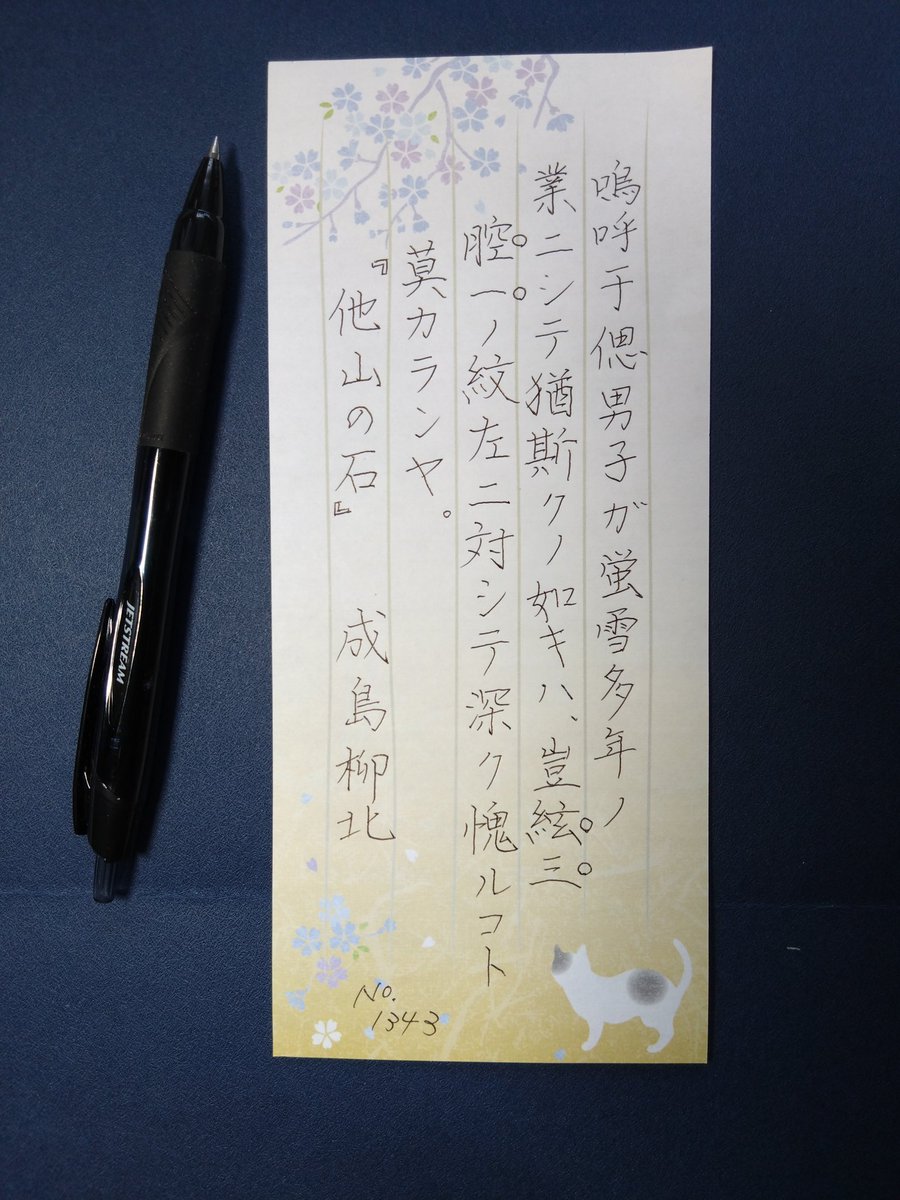 嗚呼于偲男子が蛍雪多年ノ
業ニシテ猶斯クノ如キハ、豈絃三
腔一ノ紋左ニ対シテ深ク愧ルコト
莫カランヤ。
『他山の石』 成島柳北
No.
1343
JETSTREAM